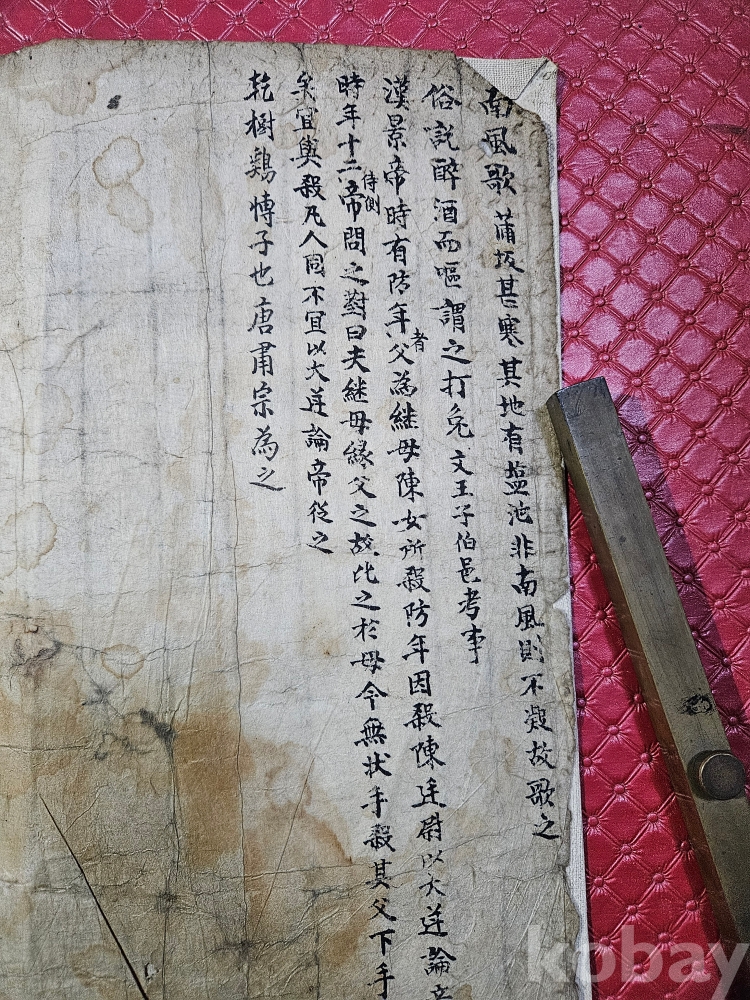 南風歌 蒲坂甚寒其地有塩池非南風則不凝故歌之
俗説醉酒而嘔謂之打兔 文王子伯邑考事
漢景帝時有防年者父為継母陳女所殺防年因殺陳廷尉以大逆論
時年十二侍側帝問之對曰夫継母縁父之故比之於母今無状手殺其父下手
矣宜與殺凡人同不宜以大逆論帝從之
乾樹鷄慱子也唐肅宗為之
kobay